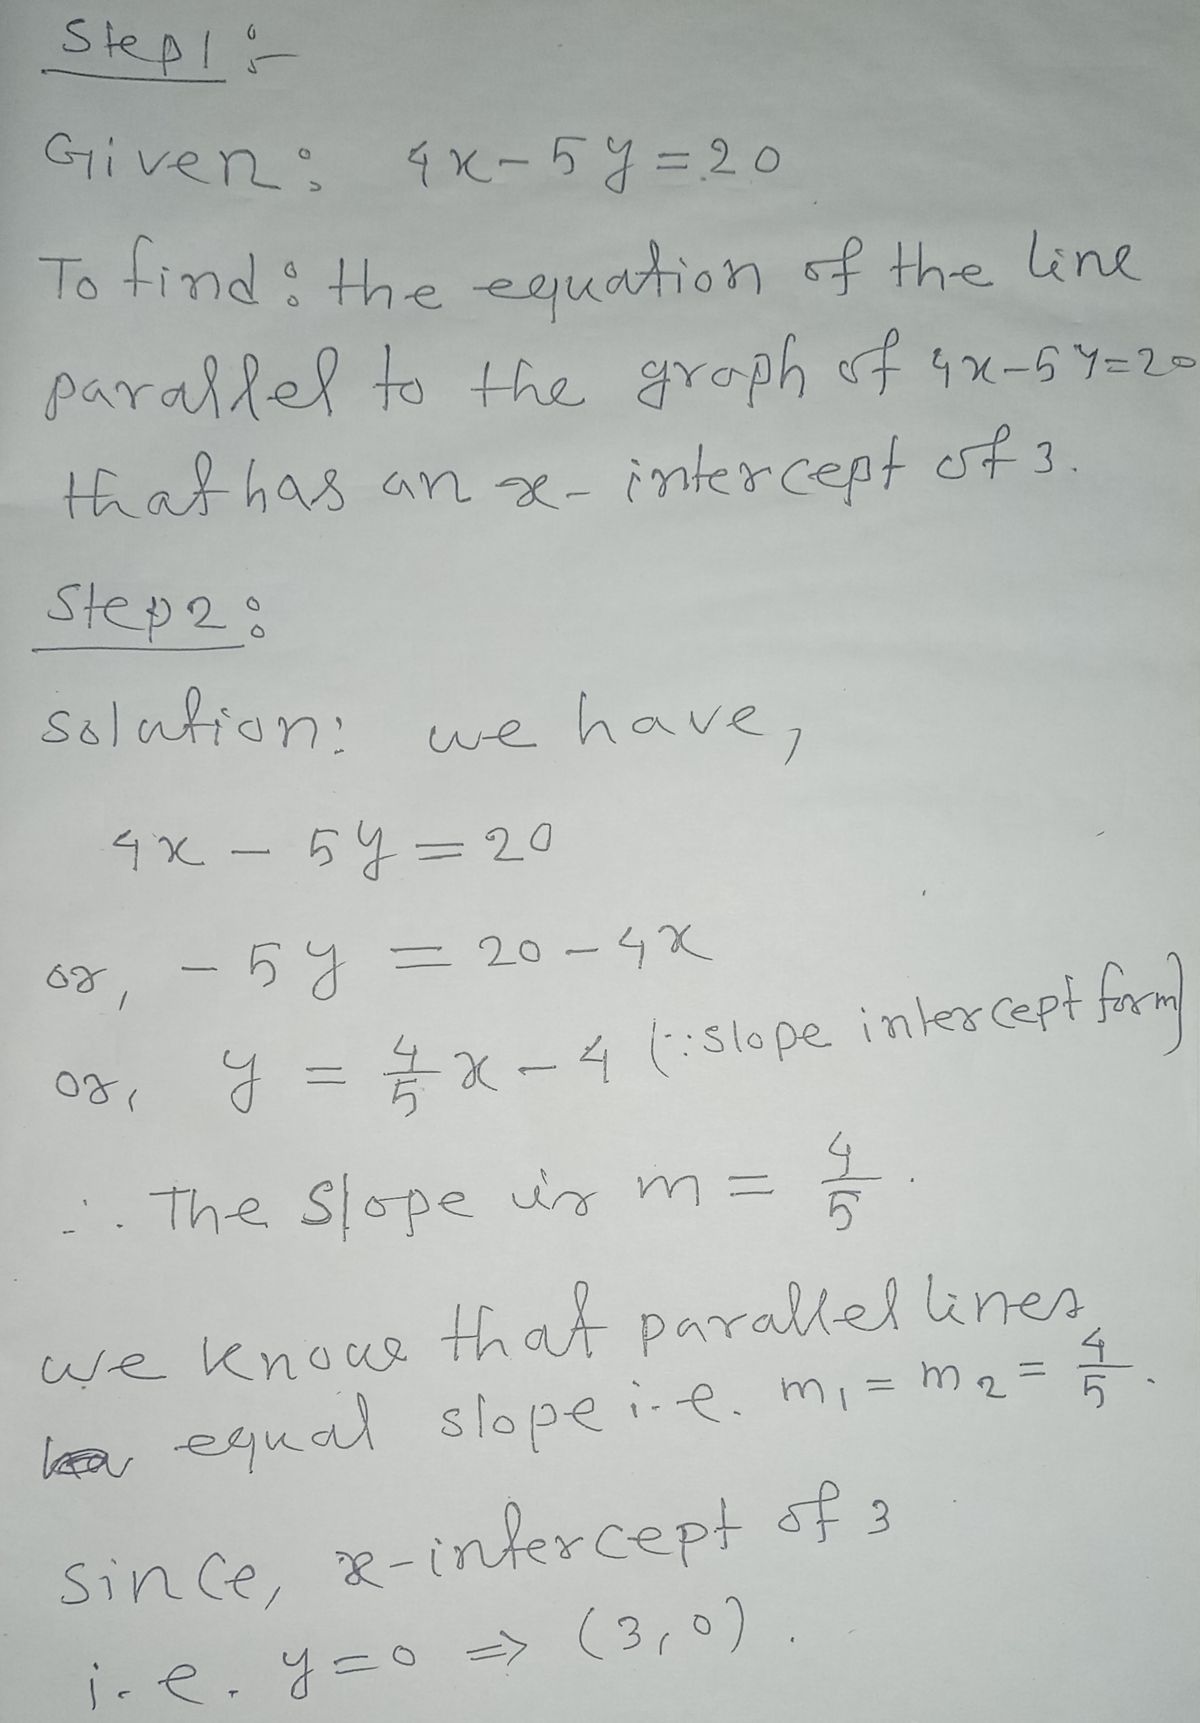 Step1 :-
Given: 4x-5y=20
To find: the equation of the line
parallel to the graph of 4x-5y=20
that has an x-intercept of 3.
Step2:
Solution: we have,
4x - 5y = 20
or, -5y = 20-4x
or, y = 4/5 x - 4 (∵ slope intercept form)
∴ The slope is m = 4/5.
we know that parallel lines
equal slope i.e. m₁ = m₂ = 4/5.
since, x-intercept of 3
i.e. y=0 ⇒ (3,0).